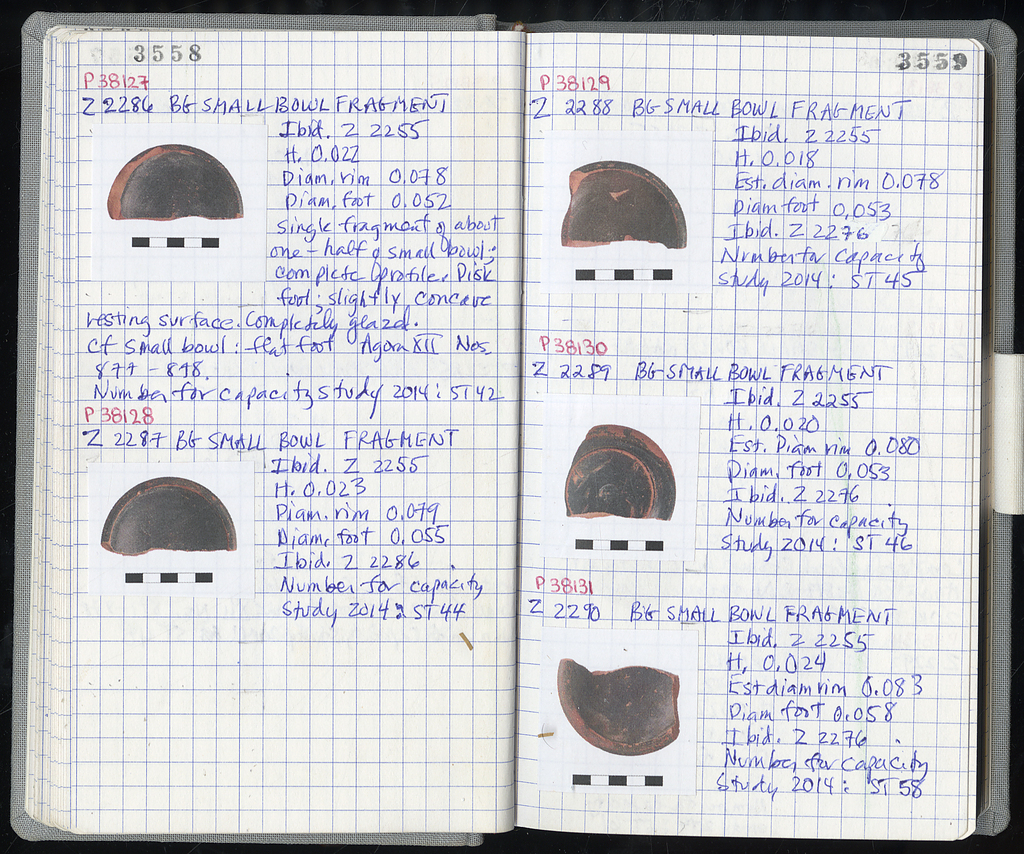 3558
P 38127
Z 2286 BG SMALL BOWL FRAGMENT
Ibid. Z 2255
H. 0.022
Diam. rim 0.078
Diam. foot 0.052
Single fragment of about
one-half of small bowl;
complete profile. Disk
foot; slightly concave
resting surface. Completely glazed.
Cf small bowl: flat foot Agora XII Nos.
877-898.
Number for capacity study 2014: ST 42
P 38128
Z 2287 BG SMALL BOWL FRAGMENT
Ibid. Z 2255
H. 0.023
Diam. rim 0.079
Diam. foot 0.055
Ibid. Z 2286
Number for capacity
Study 2014: ST 44
3559
P 38129
Z 2288 BG SMALL BOWL FRAGMENT
Ibid. Z 2255
H. 0.018
Est. diam. rim 0.078
Diam foot 0.053
Ibid. Z 2276
Number for capacity
study 2014: ST 45
P 38130
Z 2289 BG SMALL BOWL FRAGMENT
Ibid. Z 2255
H. 0.020
Est. Diam rim 0.080
Diam. foot 0.053
Ibid. Z 2276
Number for capacity
Study 2014: ST 46
P 38131
Z 2290 BG SMALL BOWL FRAGMENT
Ibid. Z 2255
H. 0.024
Est diam rim 0.083
Diam foot 0.058
Ibid. Z 2276
Number for capacity
Study 2014: ST 58